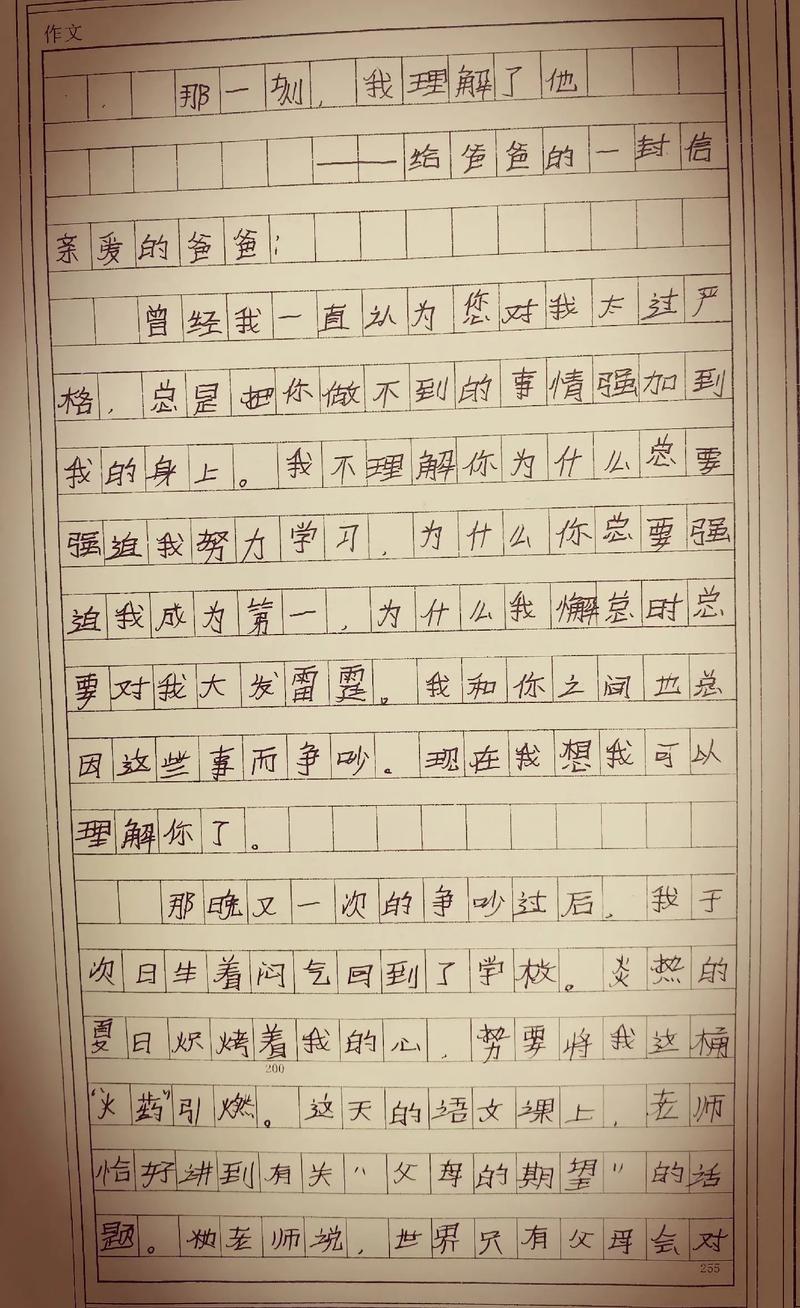 作文
那一刻，我理解了他
——给爸爸的一封信
亲爱的爸爸：
曾经我一直认为您对我太过严
格，总是把你做不到的事情强加到
我的身上。我不理解你为什么总要
强迫我努力学习，为什么你总要强
迫我成为第一，为什么我懈怠时总
要对我大发雷霆。我和你之间也总
因这些事而争吵。现在我想我可以
理解你了。
那晚又一次的争吵过后，我于
次日生着闷气回到了学校。炎热的
夏日炽烤着我的心，势要将我这桶
200
“火药”引燃。这天的语文课上，老师
恰好讲到有关“父母的期望”的话
题。老师说，世界只有父母会对
255